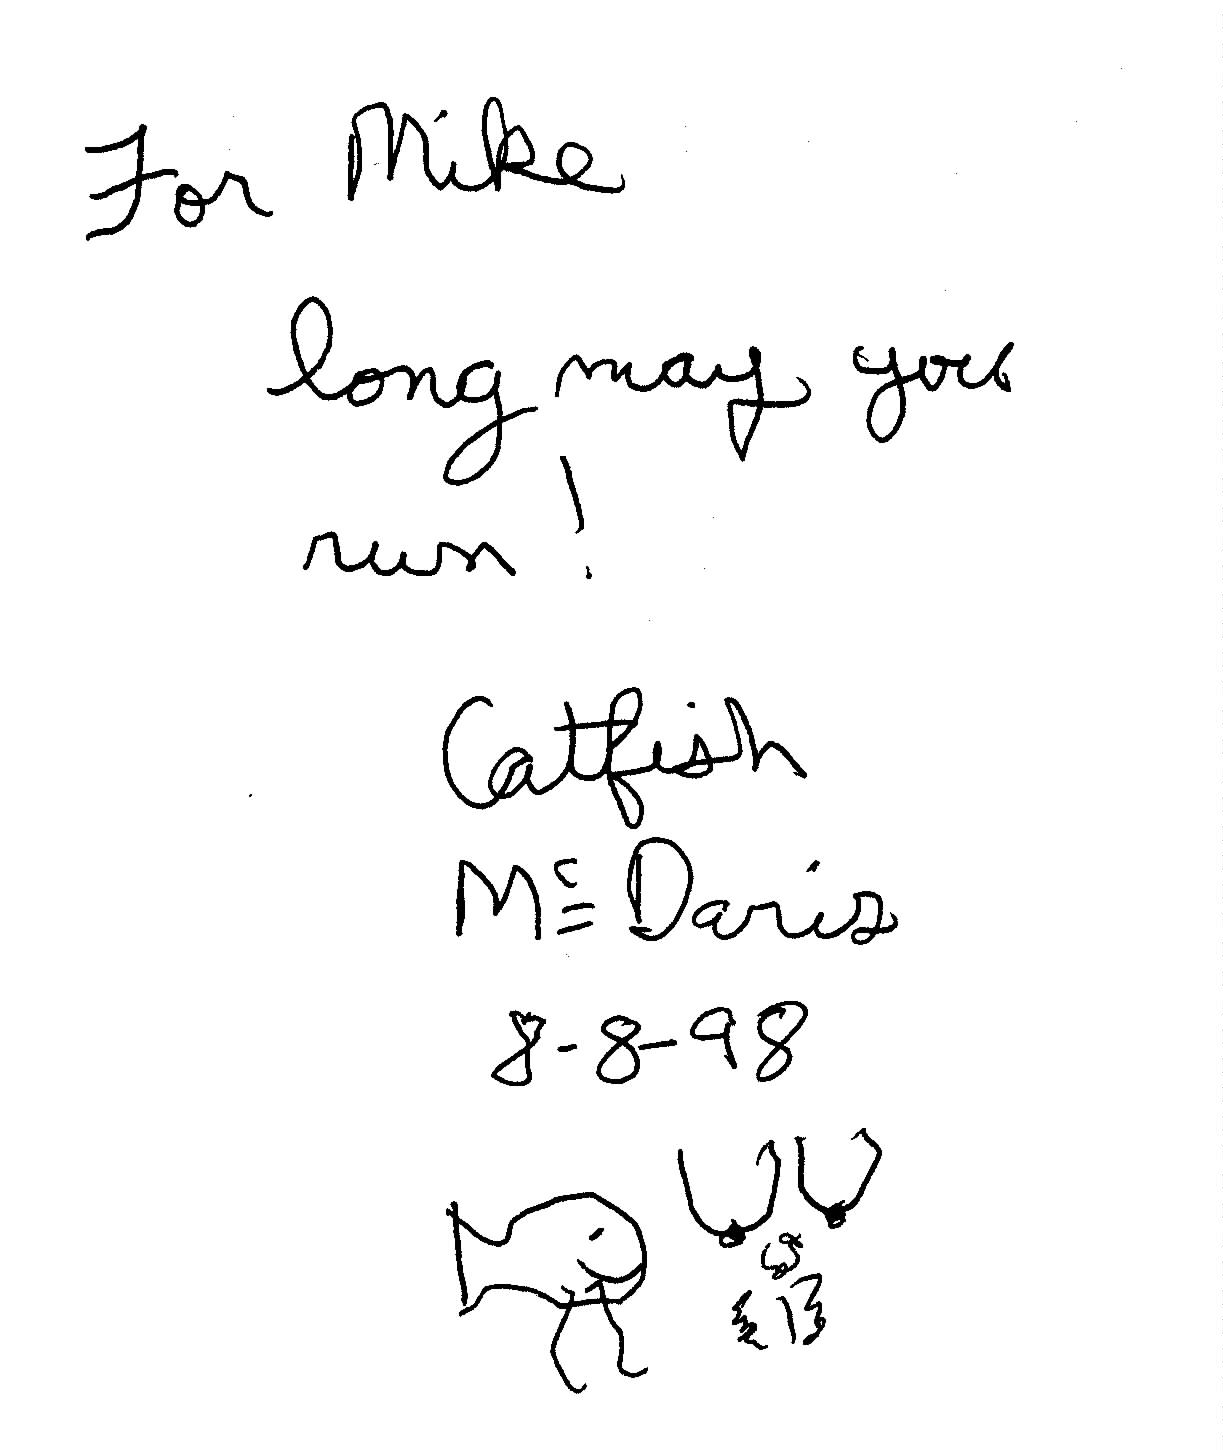 For Mike
long may you
run!
Catfish
Mc Daris
8-8-98